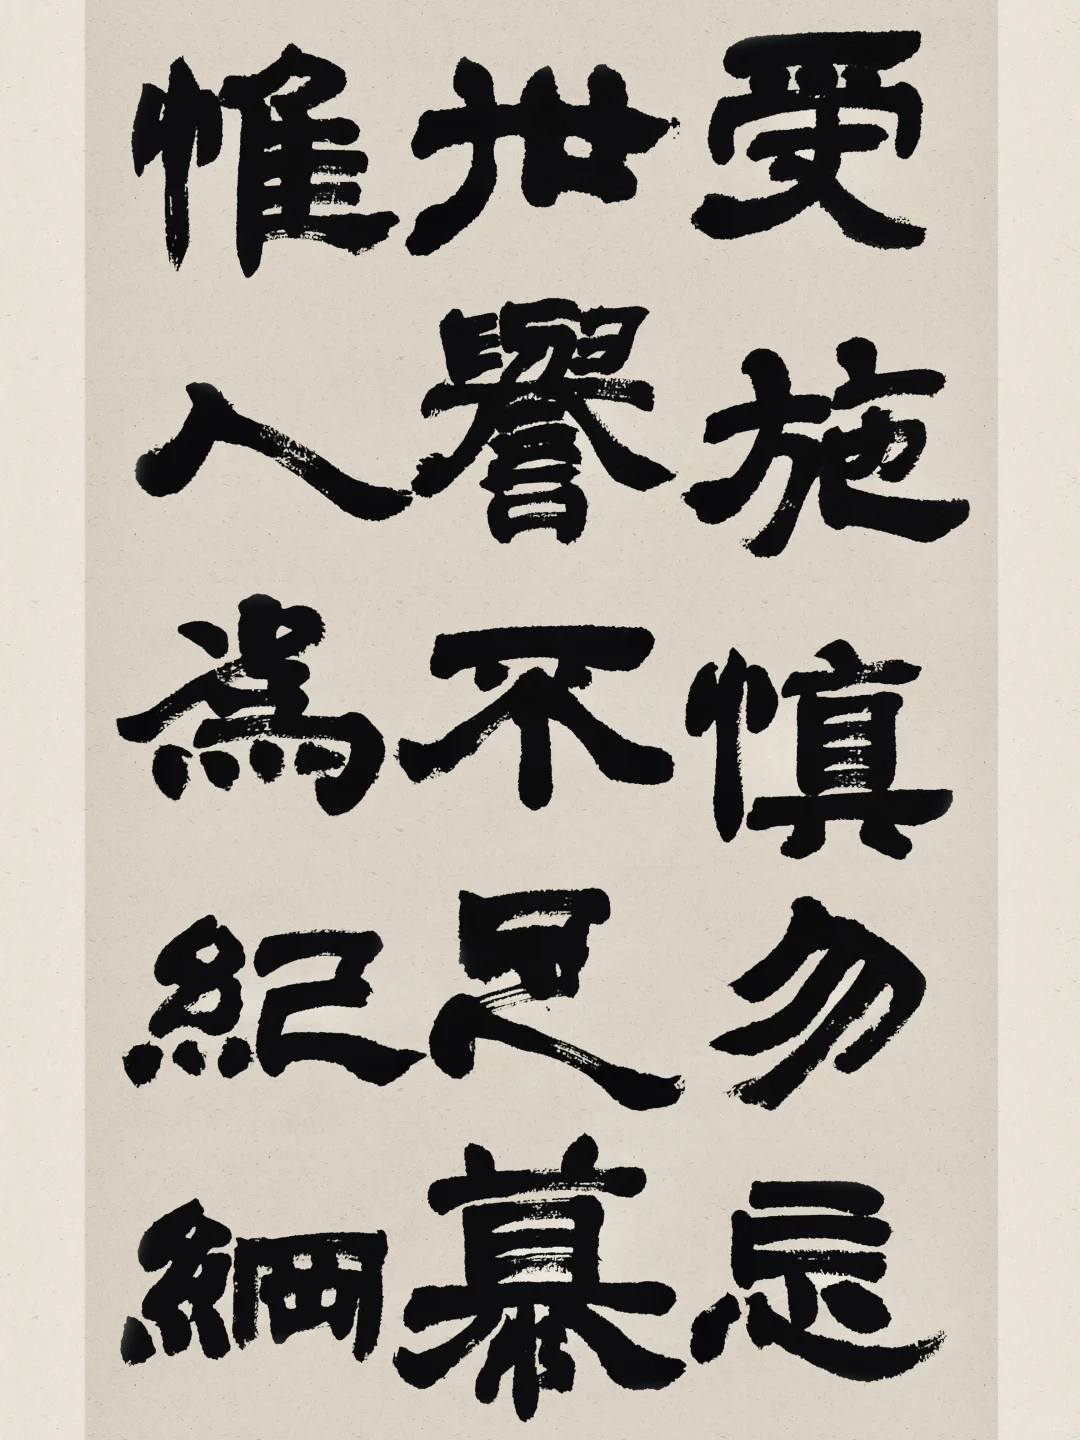 受施慎勿忘
世譽不足慕
惟人為紀綱